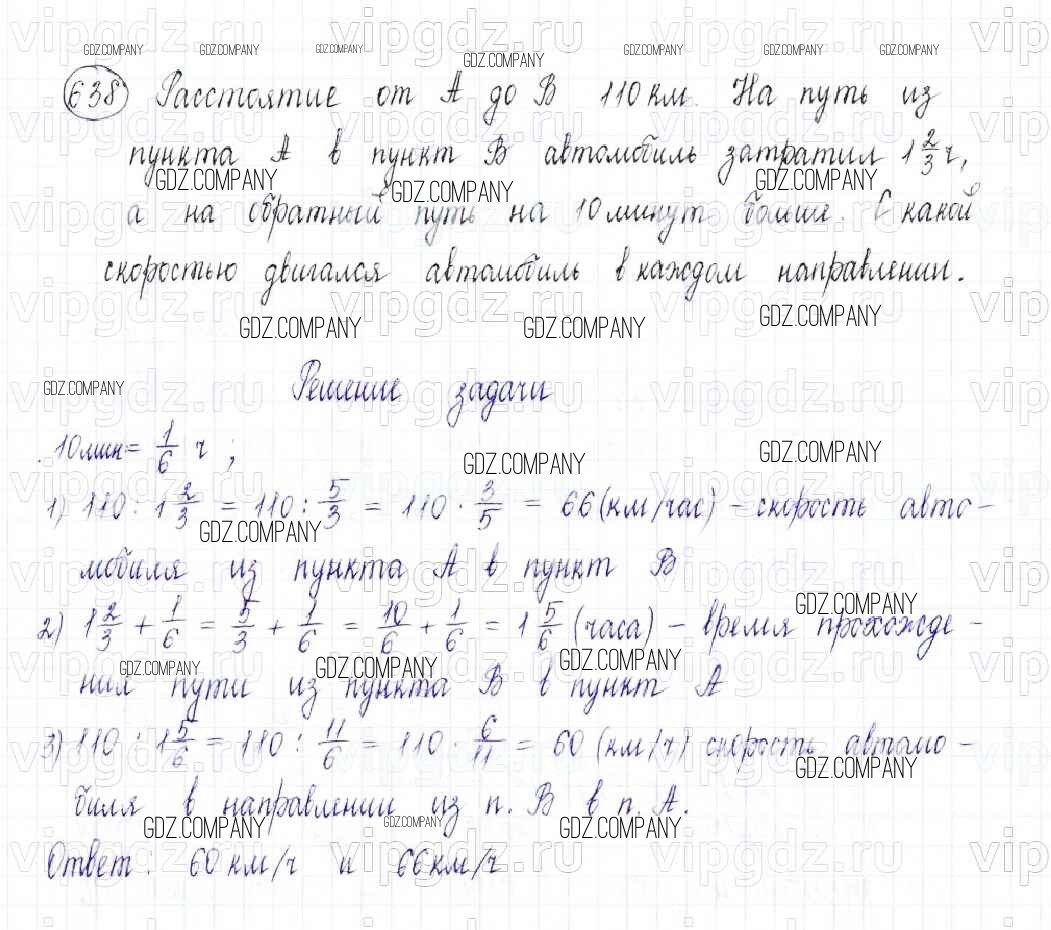 638 Расстояние от А до В 110 км. На путь из
пункта А в пункт В автомобиль затратил 1 2/3 ч,
а на обратный путь на 10 минут больше. С какой
скоростью двигался автомобиль в каждом направлении.
Решение задачи
10мин = 1/6 ч ;
1) 110 : 1 2/3 = 110 : 5/3 = 110 · 3/5 = 66 (км/час) – скорость авто-
мобиля из пункта А в пункт В
2) 1 2/3 + 1/6 = 5/3 + 1/6 = 10/6 + 1/6 = 1 5/6 (часа) – время прохожде-
ния пути из пункта В в пункт А
3) 110 : 1 5/6 = 110 : 11/6 = 110 · 6/11 = 60 (км/ч) скорость автомо-
биля в направлении из п. В в п. А.
Ответ: 60 км/ч и 66 км/ч
GDZ.COMPANY
vipgdz.ru